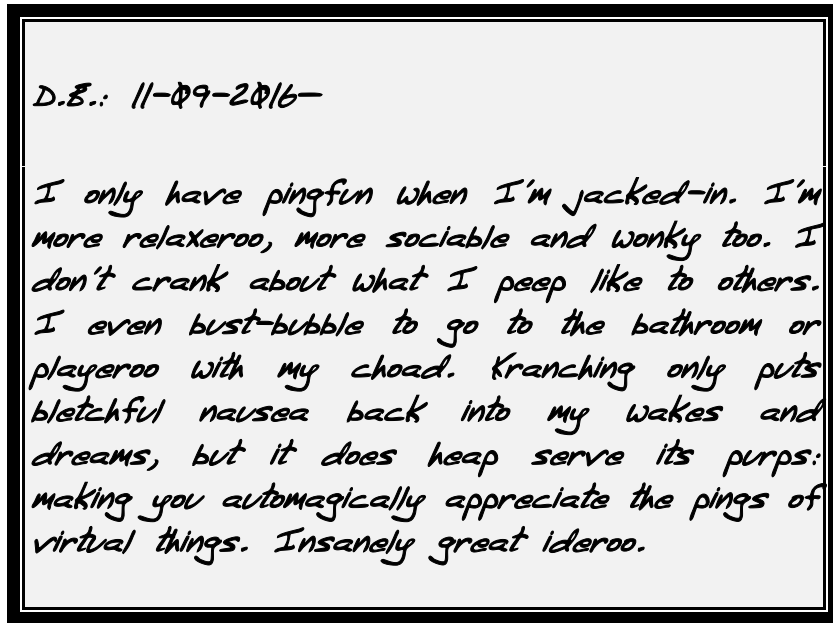 D.E.: 11-09-2016-
I only have pingfun when I'm jacked-in. I'm
more relaxeroo, more sociable and wonky too. I
don't crank about what I peep like to others.
I even bust-bubble to go to the bathroom or
playeroo with my choad. Kranching only puts
bletchful nausea back into my wakes and
dreams, but it does heap serve its purps:
making you automagically appreciate the pings of
virtual things. Insanely great ideroo.